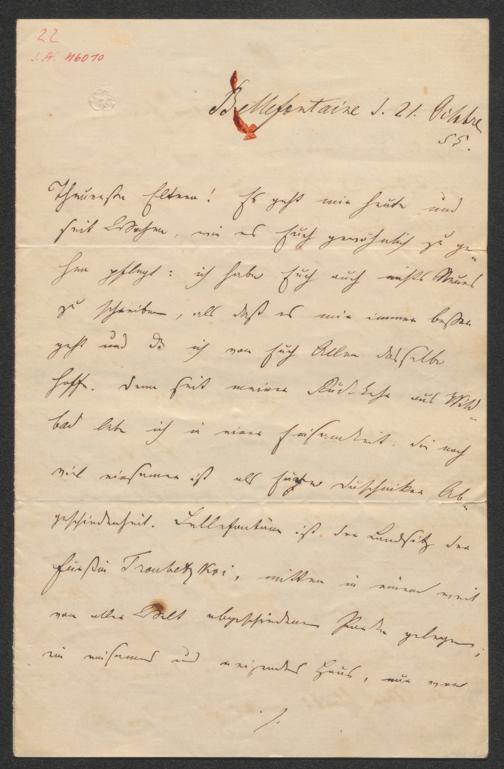 22
J.N. 46010
Bellefontaine d. 21. Octbre
55.
Theuerste Eltern! Es geht mir heute und
seit Wochen, wie es Euch gewöhnlich zu ge-
hen pflegt: ich habe Euch auch nichts Neues
zu schreiben, als daß es mir immer besser
geht und daß ich von Euch Allen dasselbe
hoffe. Denn seit meiner Rückkehr aus Wild-
bad lebe ich in einer Einsamkeit, die noch
viel einsamer ist als Ab-
geschiedenheit. Bellefontaine ist der Landsitz der
Fürstin Troubetzkoi, mitten in einem weit
von aller Welt abgeschiedenen Parke gelegen,
ein einsames und reizendes Haus, nur von
./.